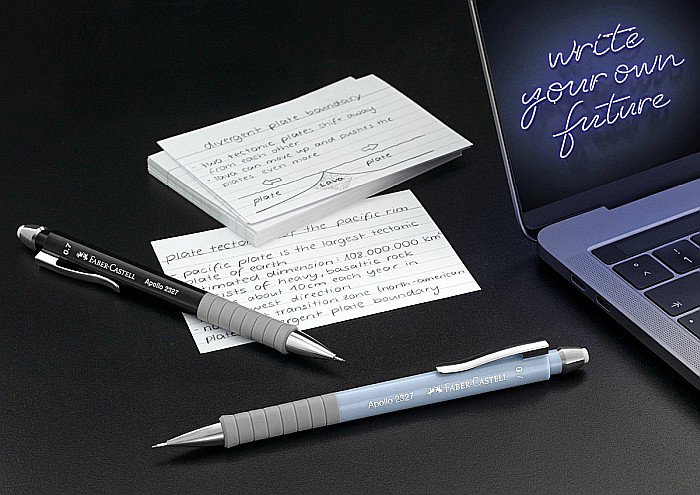 write
your own
future
divergent plate boundary
- two tectonic plates shift away
from each other
- lava can move up and pushes the
plates even more
plate
Lava
plate
plate the pacific rim
pacific plate is the largest tectonic
plate of earth
dimension: 108.000.000 km²
of heavy, basaltic rock
about 10cm each year in
west direction
transition zone (north-american
plate boundary
0.7
FABER-CASTELL
Apollo 2327
Apollo 2327
FABER-CASTELL
0.7